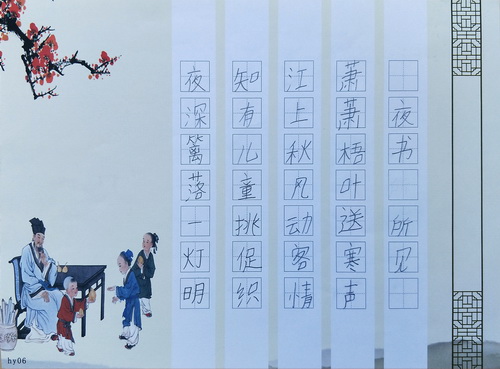 夜书所见
萧萧梧叶送寒声
江上秋风动客情
知有儿童挑促织
夜深篱落一灯明
hy06